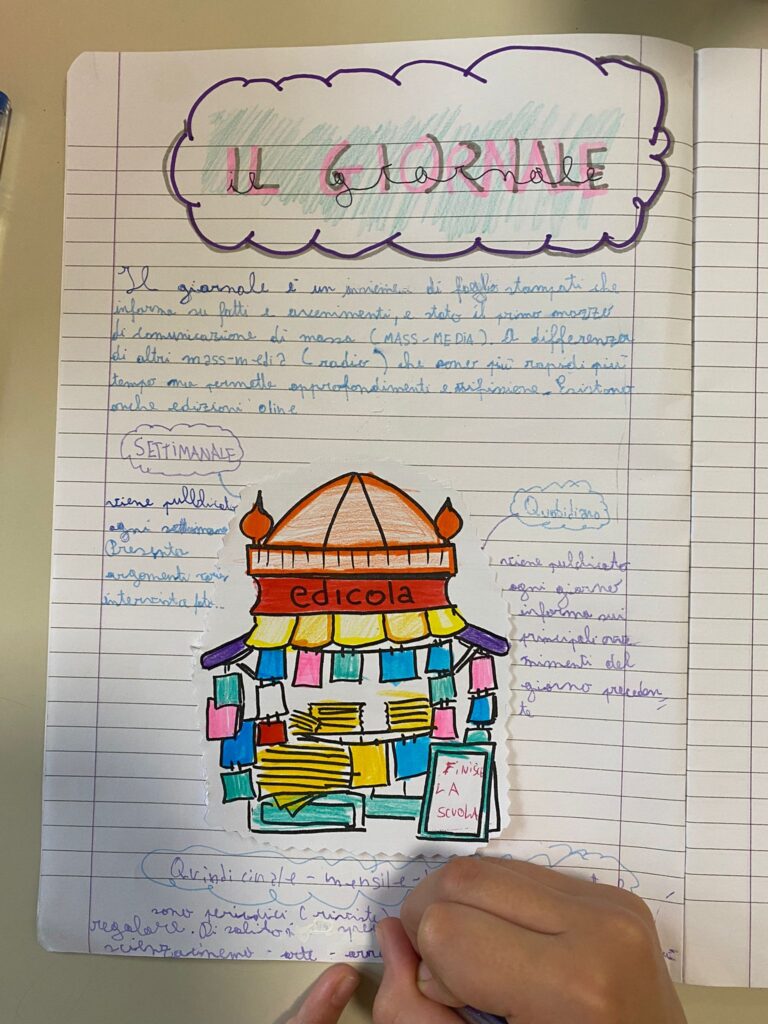 IL GIORNALE
il giornale
Il giornale è un insieme di foglio stampati che
informa su fatti e avvenimenti, e stato il primo mezzo
di comunicazione di massa (MASS-MEDIA). A differenza
di altri mass-media (radio) che sono più rapidi più
tempo ma permette approfondimenti e Esistono
anche edizioni oline
SETTIMANALE
viene pubblicato
ogni settimana
Presenta
argomenti vari
intervista foto...
Quotidiano
viene pubblicato
ogni giorno
informa sui
principali avve
nimenti del
giorno preceden
te
edicola
FINISCE
LA
SCUOLA
Quindicinale - mensile -
sono periodici (riviste)
regolare. Di solito
scienza cinema - arte -